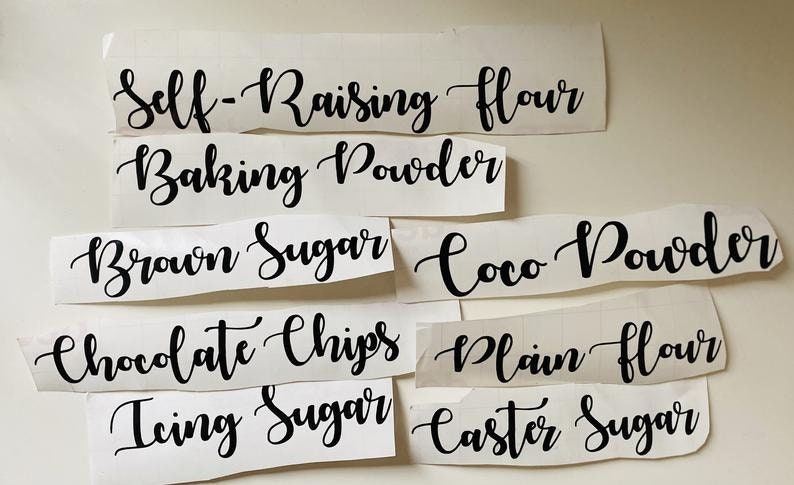 Self-Raising flour
Baking Powder
Brown Sugar
Coco Powder
Chocolate Chips
Plain flour
Icing Sugar
Caster Sugar